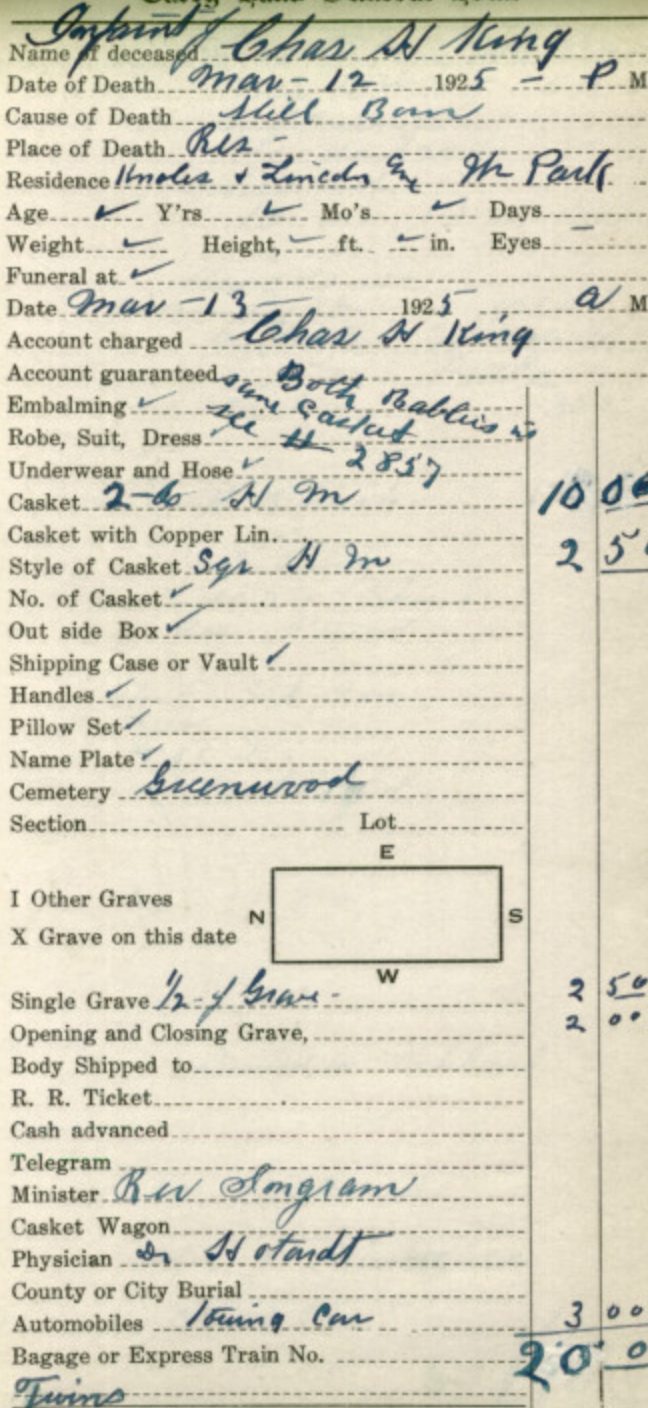 Infant of
Name of deceased Chas H King
Date of Death Mar - 12 1925 - P M
Cause of Death Still Born
Place of Death Res -
Residence Knoles & Lincoln Ave Wr Park
Age ✓ Y'rs ✓ Mo's ✓ Days
Weight ✓ Height, ✓ ft. ✓ in. Eyes –
Funeral at ✓
Date Mar - 13 - 1925 a M
Account charged Chas H King
Account guaranteed Both Babies in
Embalming ✓ same casket
Robe, Suit, Dress ✓ see # 2857
Underwear and Hose ✓
Casket 2-6 H M 10 00
Casket with Copper Lin.
Style of Casket Sqr H M 2 50
No. of Casket ✓
Out side Box ✓
Shipping Case or Vault ✓
Handles ✓
Pillow Set ✓
Name Plate ✓
Cemetery Greenwood
Section Lot
E
I Other Graves
N S
X Grave on this date
W
Single Grave 1/2 of Grave - 2 50
Opening and Closing Grave, 2 00
Body Shipped to
R. R. Ticket
Cash advanced
Telegram
Minister Rev Ingram
Casket Wagon
Physician Dr Hotardt
County or City Burial
Automobiles Touring Car 3 00
Bagage or Express Train No. 20 0
Twins